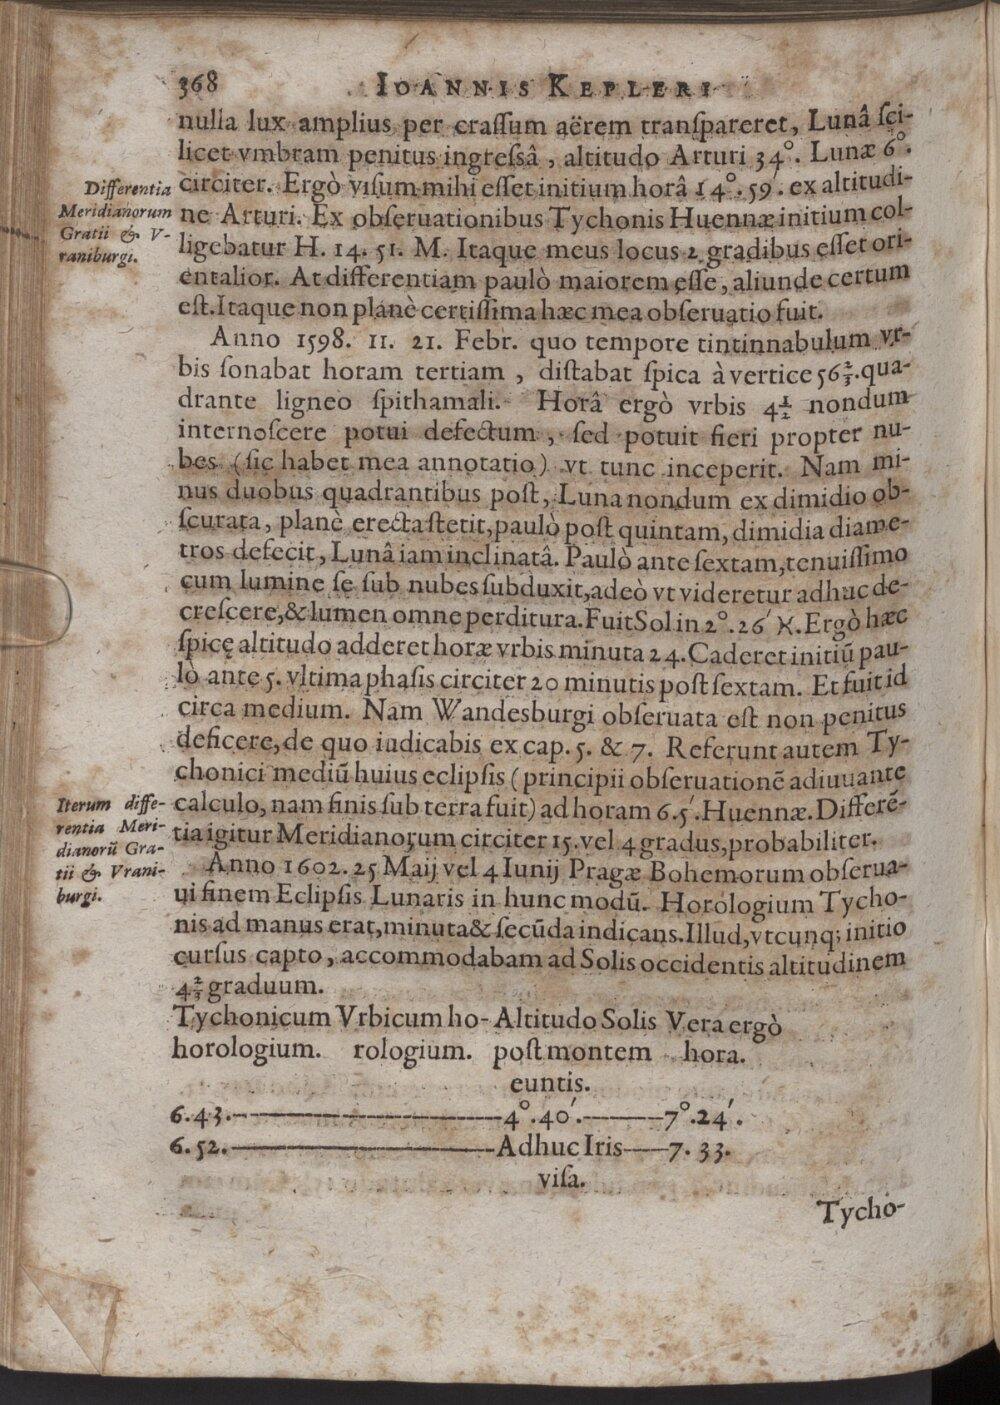 368 IOANNIS KEPLERI
nulla lux amplius per craſſum aërem tranſpareret, Lunâ ſci-
licet vmbram penitus ingreſsâ, altitudo Arturi 34°. Lunæ 6°.
circiter. Ergò viſum mihi eſſet initium horâ 14°. 59. ex altitudi-
ne Arturi. Ex obſeruationibus Tychonis Huennæ initium col-
ligebatur H. 14. 51. M. Itaque meus locus 2 gradibus eſſet ori-
entalior. At differentiam paulò maiorem eſſe, aliunde certum
eſt. Itaque non planè certiſſima hæc mea obſeruatio fuit.
Differentia
Meridianorum
Gratii & V-
raniburgi.
Anno 1598. 11. 21. Febr. quo tempore tintinnabulum vr-
bis ſonabat horam tertiam, diſtabat ſpica à vertice 56⅔. qua-
drante ligneo ſpithamali. Horâ ergò vrbis 4½ nondum
internoſcere potui defectum, ſed potuit fieri propter nu-
bes (ſic habet mea annotatio) vt tunc inceperit. Nam mi-
nus duobus quadrantibus poſt, Luna nondum ex dimidio ob-
ſcurata, planè erecta ſtetit, paulò poſt quintam, dimidia diame-
tros defecit, Lunâ iam inclinatâ. Paulò ante ſextam, tenuiſſimo
cum lumine ſe ſub nubes ſubduxit, adeò vt videretur adhuc de-
creſcere, & lumen omne perditura. Fuit Sol in 2°. 26′ ♓. Ergò hæc
ſpicę altitudo adderet horæ vrbis minuta 24. Caderet initiū pau-
lò ante 5. vltima phaſis circiter 20 minutis poſt ſextam. Et fuit id
circa medium. Nam Wandesburgi obſeruata eſt non penitus
deficere, de quo iudicabis ex cap. 5. & 7. Referunt autem Ty-
chonici mediū huius eclipſis (principii obſeruationē adiuuante
calculo, nam finis ſub terra fuit) ad horam 6. 5′. Huennæ. Differē-
tia igitur Meridianorum circiter 15. vel 4 gradus, probabiliter.
Iterum diffe-
rentia Meri-
dianorū Gra-
tii & Vrani-
burgi.
Anno 1602. 25 Maij vel 4 Iunij Pragæ Bohemorum obſerua-
ui finem Eclipſis Lunaris in hunc modū. Horologium Tycho-
nis ad manus erat, minuta & ſecūda indicans. Illud, vtcunq; initio
curſus capto, accommodabam ad Solis occidentis altitudinem
4⅔ graduum.
Tychonicum Vrbicum ho- Altitudo Solis Vera ergò
horologium. rologium. poſt montem hora.
euntis.
6. 43. 4°. 40′. 7°. 24′.
6. 52. Adhuc Iris 7. 33.
viſa.
Tycho-